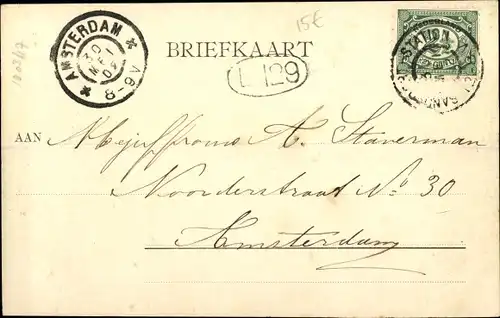 15€
AMSTERDAM
30
MEI
04
8-9V
BRIEFKAART
L 129
STATION
AAN Mejuffrouw A. Staverman
Noorderstraat No 30
Amsterdam